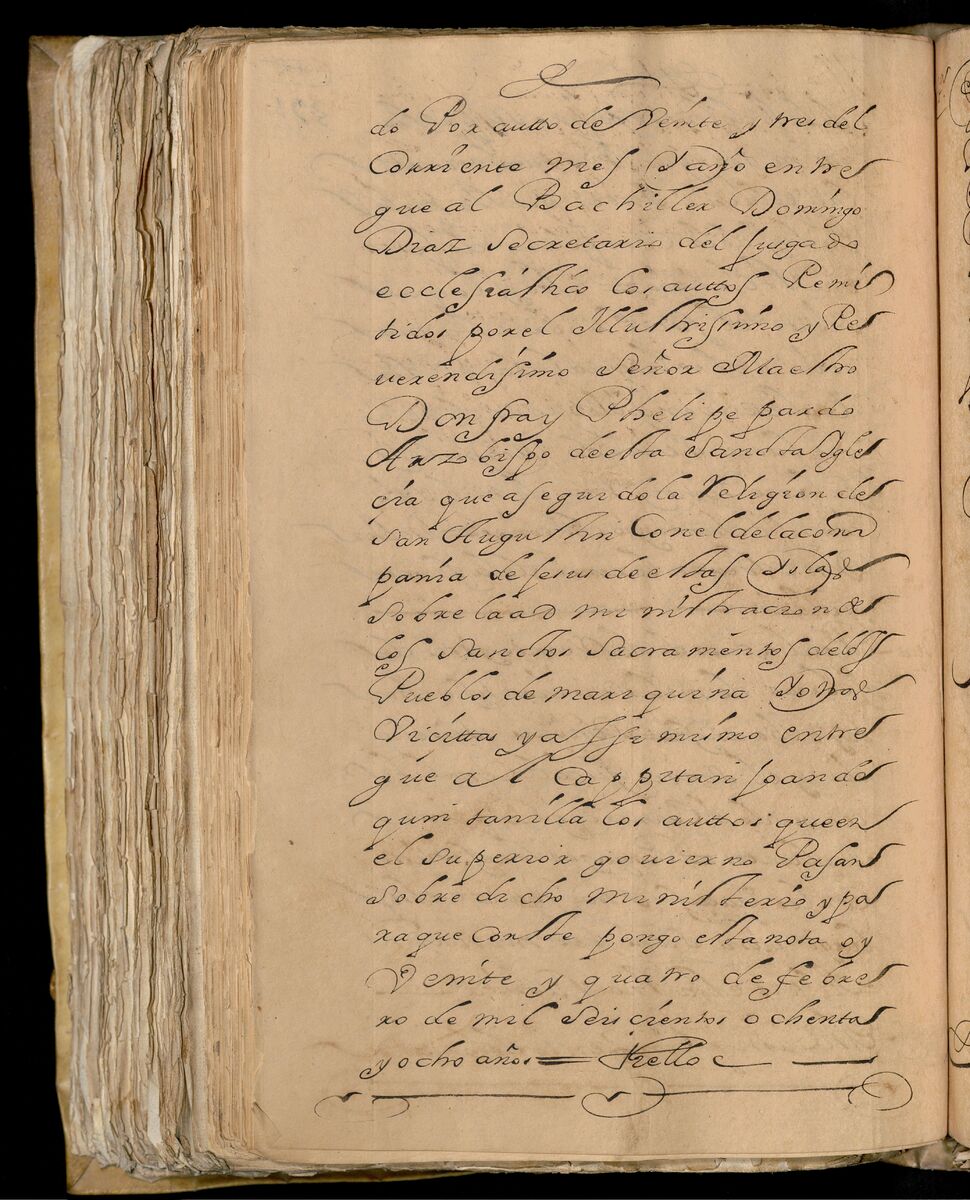 do Por autto de Veinte y tres del
Corriente mes Y año entre
gue al Bachiller Domingo
Diaz Secretario del Jusgado
ecclesiastico los auttos Remi
tidos por el Illustrissimo y Re
verendisimo Señor Maestro
Don fray Phelipe pardo
Arzobispo de esta Sancta Igle
cia que a seguido la Religion de
San Augustin Con el de la com
pania de Jesus de estas Yslas
Sobre la administracion de
los Sanctos Sacramentos de los
Pueblos de mariquina Y otras
Vicittas y assi mismo entre
gue al Cappitan Joan de
quintanilla los auttos que en
el Superior govierno Pasan
Sobre dicho ministerio y pa
ra que Conste pongo esta nota oy
Veinte y quatro de febre
ro de mil Seiscientos ochenta
y ocho años = Tello